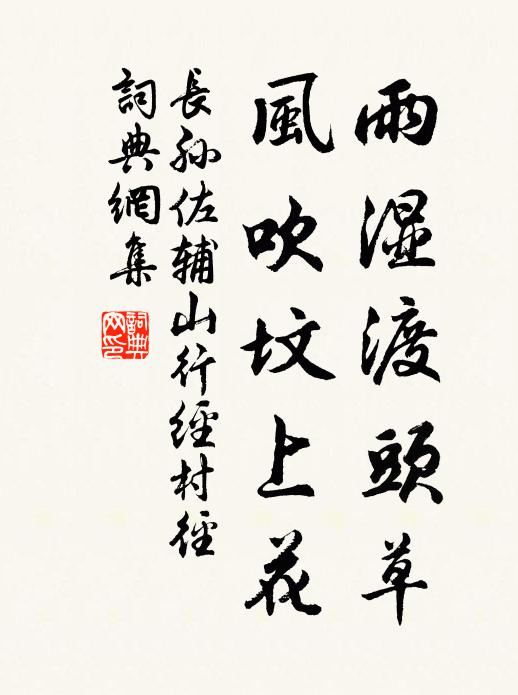 雨湿渡頭草
風吹坟上花
長孙佐輔山行經村徑
詞典網集
詞典网印